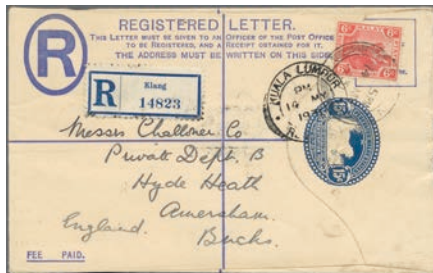 REGISTERED LETTER.
THIS LETTER MUST BE GIVEN TO AN OFFICER OF THE POST OFFICE
TO BE REGISTERED, AND A RECEIPT OBTAINED FOR IT.
THE ADDRESS MUST BE WRITTEN ON THIS SIDE.
R
R
Klang
14823
KUALA LUMPUR
PM
MY
Messrs Challoner Co
Private Dept. B
Hyde Heath
Amersham.
Bucks.
England.
FEE PAID.